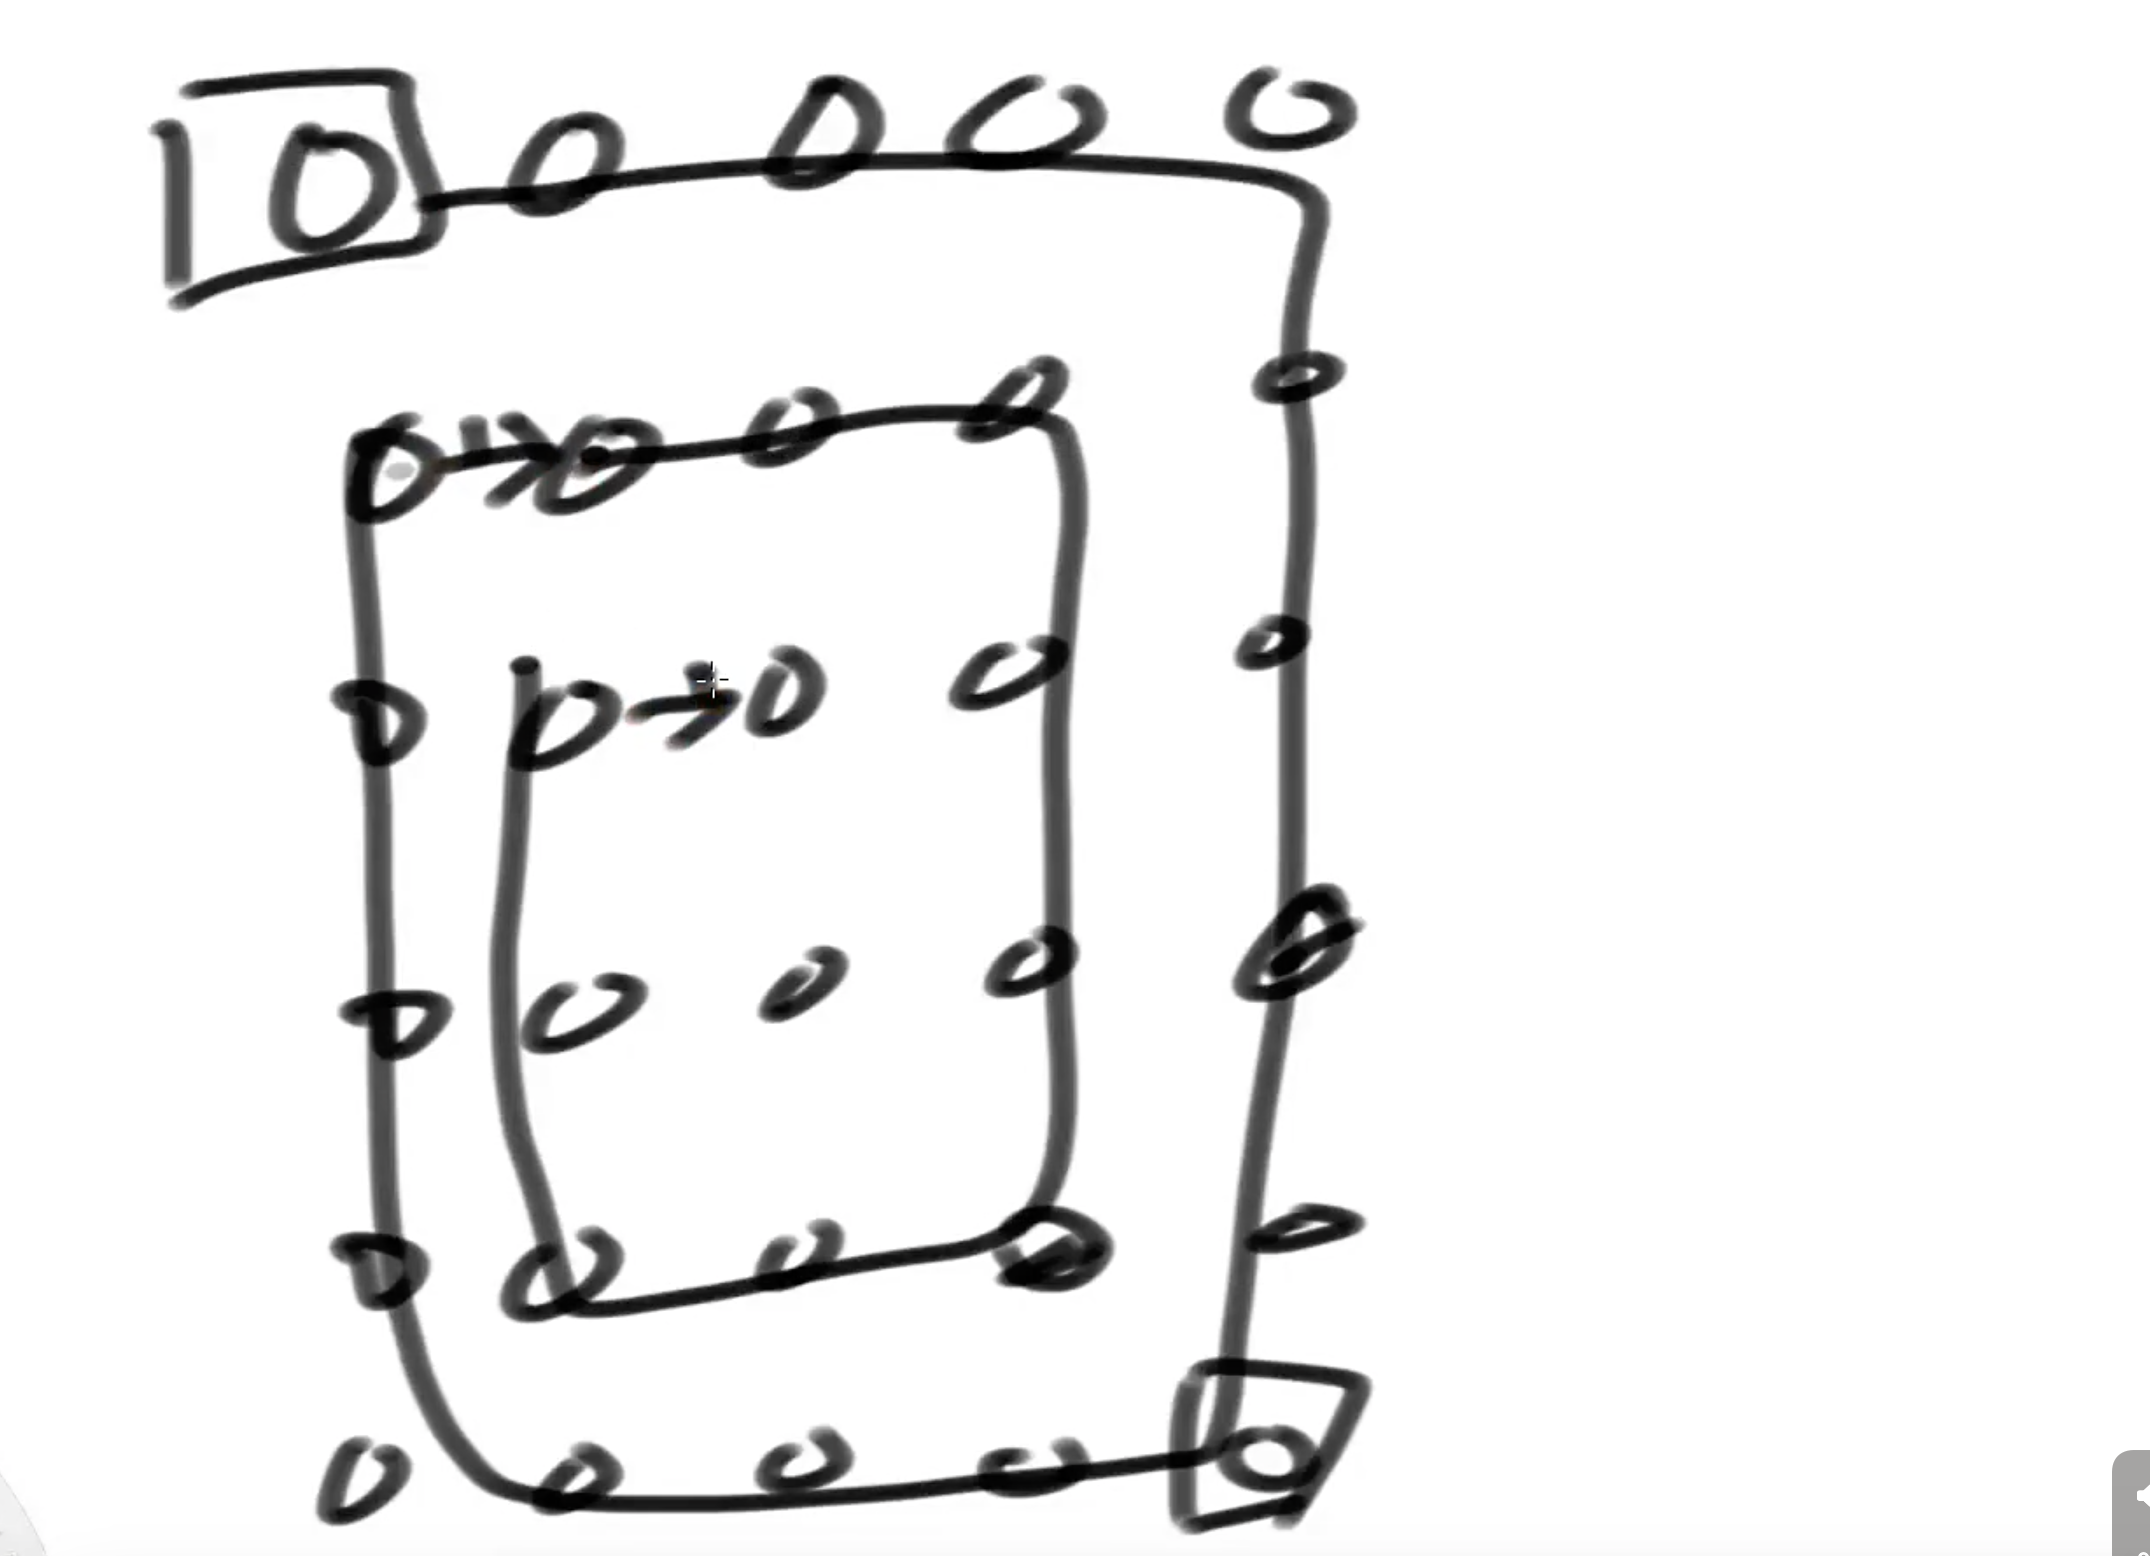 0 0 0 0 0
0 → 0 0 0 0
0 0 → 0 0 0
0 0 0 0 0
0 0 0 0 0
0 0 0 0 0